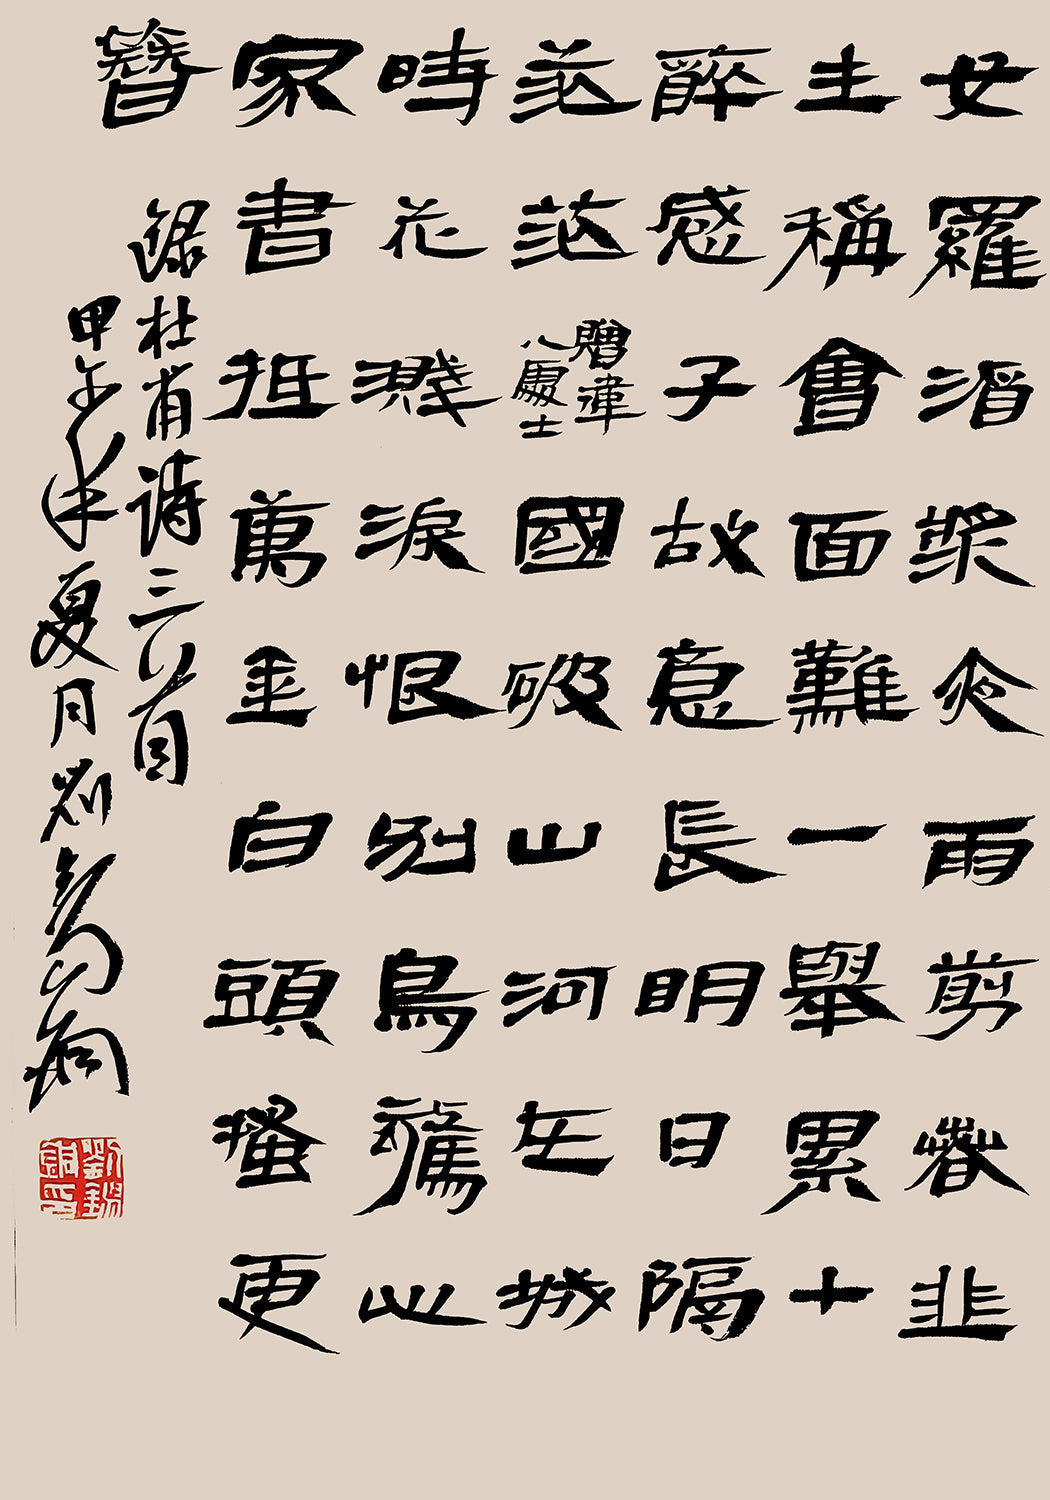 女羅酒漿夜雨剪春韭
主稱會面難一舉累十
醉感子故意長明日隔
茫茫贈衛八處士國破山河在城
時花濺淚恨別鳥驚心
家書抵萬金白頭搔更
簪
錄杜甫詩三首
甲午年夏月劉錫銅
劉錫銅印